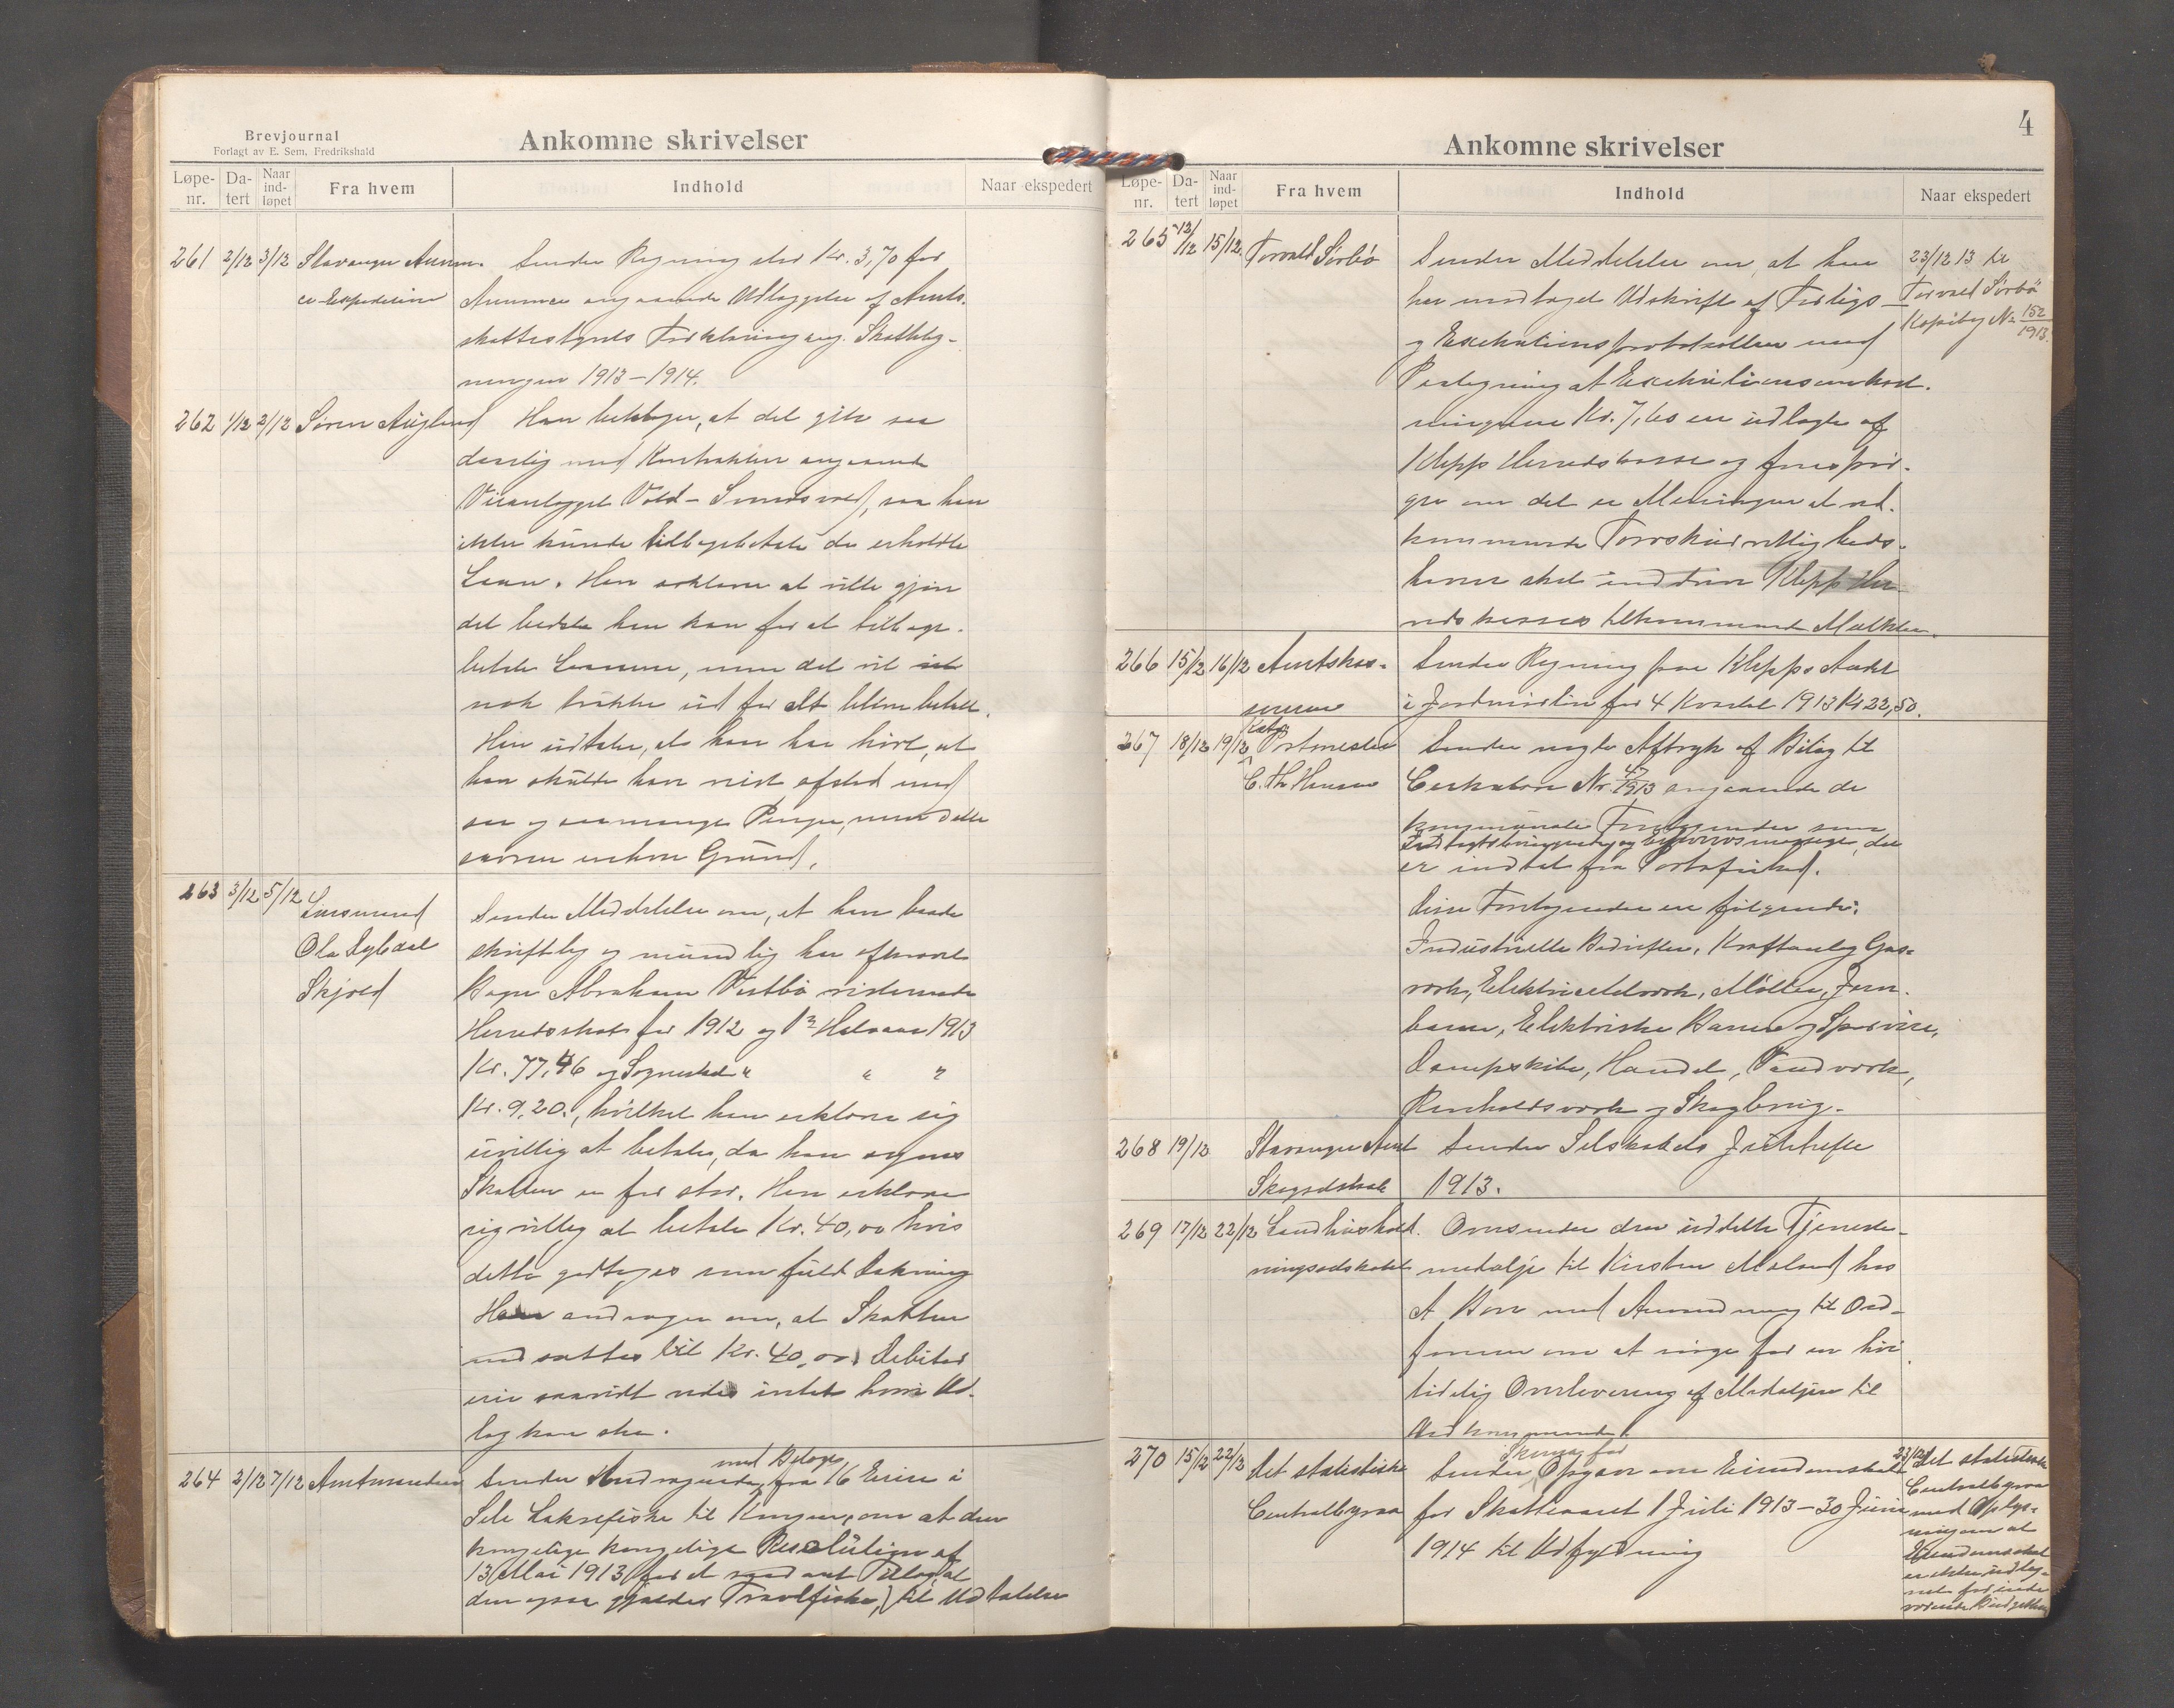 Brevjournal
Forlagt av E. Sem, Fredrikshald
Ankomne skrivelser
Løpe-nr.
Da-tert
Naar ind-løpet
Fra hvem
Indhold
Naar ekspedert
261 2/12 3/12 Stavanger Annon-
ce-Expedition
Sender Regning stor Kr. 3,70 for
Annonce angaaende Udlæggelse af Amts-
skattestyrets Forklaring ang. Skattelig-
ningen 1913-1914.
262 1/12 2/12 Sören Auglend
Han beklager, at det gik saa
daarlig med Kontrakten angaaende
Veianlægget Vold - , saa han
ikke kunde tilbagebetale de erholdte
Laan. Han erklærer at ville gjøre
det bedste han kan for at tilbage-
betale Laanene, men det vil
nok trække ud før alt bliver betalt.
Han udtaler, at han har hørt, at
han skulde have reist afsted med
saa og saamange Penger, men dette
savner enhver Grund.
263 3/12 5/12 Lensmand
Ola Dybdal
Skjold
Sender Meddelelse om, at han baade
skriftlig og mundlig har afkrævet
Bager Abraham Vestbø resterende
Herredsskat for 1912 og 1ste Halvaar 1913
Kr. 77,46 og Sogneskat " " "
Kr. 9,20, hvilket han erklærer sig
uvillig at betale, da han synes
Skatten er for stor. Han erklærer
sig villig at betale Kr. 40,00 hvis
dette godtages som fuld Dækning
Han andrager om, at Skatten
nedsættes til Kr. 40,00. Debitor
eier saavidt vides intet hvori Ud-
læg kan ske.
264 2/12 7/12 Amtmanden
med Bilage
Sender Andragende fra 16 Eiere i
Sele Laksefiske til Kongen, om at den
kongelige kongelige Resolution af
13 Mai 1913 faar et saadant Tillæg, at
den ogsaa gjælder , til Udtalelse
4
Ankomne skrivelser
Løpe-nr.
Da-tert
Naar ind-løpet
Fra hvem
Indhold
Naar ekspedert
265 13/12 15/12 Torvald Sörbö
Sender Meddelelse om, at han
har modtaget Udskrift af Forligs-
og Exekutionsprotokollen med
Paategning at Exekutionsomkost-
ningerne Kr. 7,60 er udlagte af
Klepp Herredskasse og forespør-
ger om det er Meningen at ved-
kommende
haver skal inddrive Klepp Her-
redskasses tilkommende Mulkter.
23/12 13 til
Torvald Sörbö
Kopibog No 152/1913.
266 15/12 16/12 Amtskas-
sereren
Sender Regning paa Klepps Andel
i Jordmorløn for 4 Kvartal 1913 Kr 22,50.
267 18/12 19/12 Postmester
C. Th. Hansen
Sender nogle Aftryk af Bilag til
Cirkulære Nr. 47/1913 angaaende de
kommunale Foretagender som
er indtat fra Portofrihed.
Disse Foretagender er følgende:
Industrielle Bedrifter, Kraftanlæg Gas-
værk, Elektricitetsværk, Møller, Jern-
baner, Elektriske Baner og Sporveie,
Dampskibe, Handel, Vandværk,
Renholdsværk og Skogbrug.
268 19/12 Stavanger Amt
Skogselskab
Sender Selskabets Julehefte
1913.
269 17/12 22/12 Landhushold-
ningsselskabet
Oversender den uddelte Tjeneste-
medalje til Kirsten Moland hos
A Bore med Anmodning til Ord-
føreren om at sørge for en høi-
tidelig Overlevering af Medaljen til
Vedkommende.
270 15/12 22/12 Det statistiske
Centralbyraa
Skema for
Sender Opgave om Eiendomsskat
for Skatteaaret 1 Juli 1913 - 30 Juni
1914 til Udfyldning
23/12 Det statistiske
Centralbyraa
med Oplys-
ning om at
Eiendomsskat
er ikke udlig-
net for inde-
værende Budgettaar